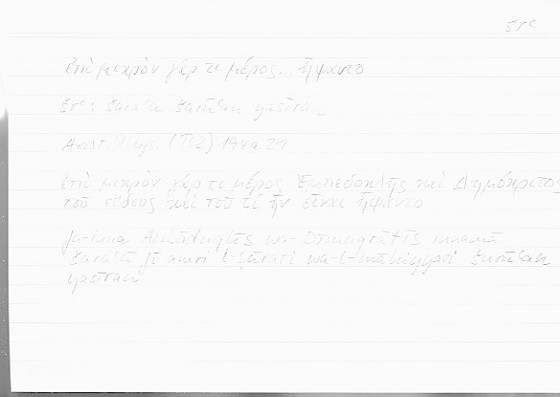 ἐπὶ μικρὸν γάρ τι μέρος... ἥψαντο
šurūʿan yasīran
Arist. Phys. (II 2) 194a 21
ἐπὶ μικρὸν γάρ τι μέρος Ἐμπεδοκλῆς καὶ Δημόκριτος
τοῦ εἴδους καὶ τοῦ τί ἦν εἶναι ἥψαντο
wa-Dīmuqrāṭīs innamā
šaraʿā fī amri l-ṣūrati wa-l-māhiyyati šurūʿan
yasīran